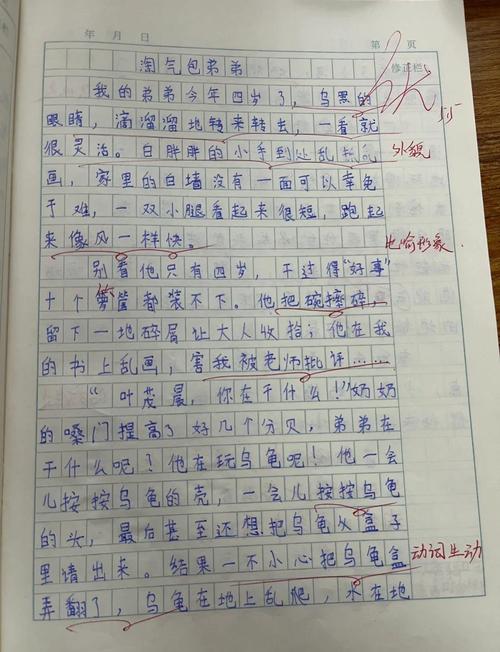 年 月 日
第 页
修正栏
淘气包弟弟
我的弟弟今年四岁了，乌黑的
5.15
眼睛，滴溜溜地转来转去，一看就
很灵活。白胖胖的小手到处乱
外貌
画，家里的白墙没有一面可以幸免
于难，一双小腿看起来很短，跑起
来像风一样快。
比喻形象
别看他只有四岁，干过得“好事”
十个箩筐都装不下。他把碗摔碎，
留下一地碎屑让大人收拾；他在我
的书上乱画，害我被老师批评……
“叶茂晨，你在干什么！”奶奶
的嗓门提高了好几个分贝，弟弟在
干什么呢？他在玩乌龟呢！他一会
儿按按乌龟的壳，一会儿按按乌龟
的头，最后甚至还想把乌龟从盒子
里请出来。结果一不小心把乌龟盒
动词生动
弄翻了，乌龟在地上乱爬，水在地